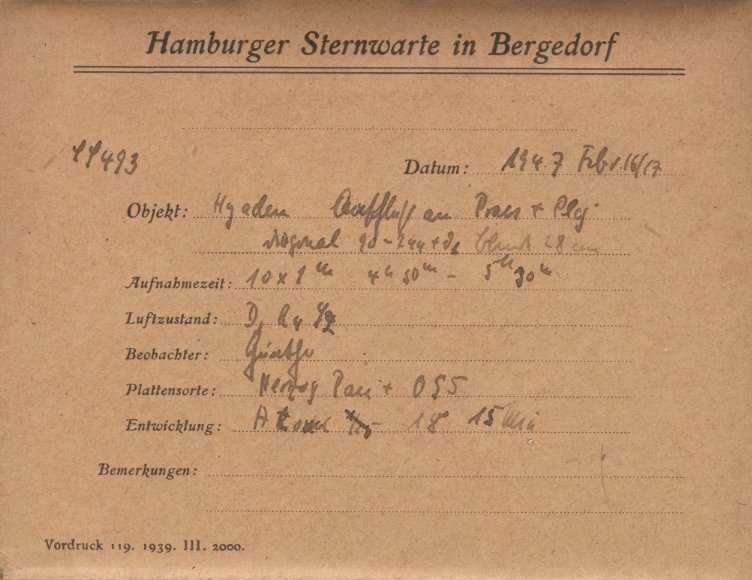 Hamburger Sternwarte in Bergedorf
493
Datum: 1947 Febr. 16/17
Objekt: Hyaden Anschluß an Präs + Plej
diagonal blende 28 cm
Aufnahmezeit: 10 x 1 m 4h 50m - 5h 30m
Luftzustand:
Beobachter: Günther
Plattensorte: Herzog Pan +
Entwicklung: 18° 15 Min
Bemerkungen:
Vordruck 119. 1939. III. 2000.